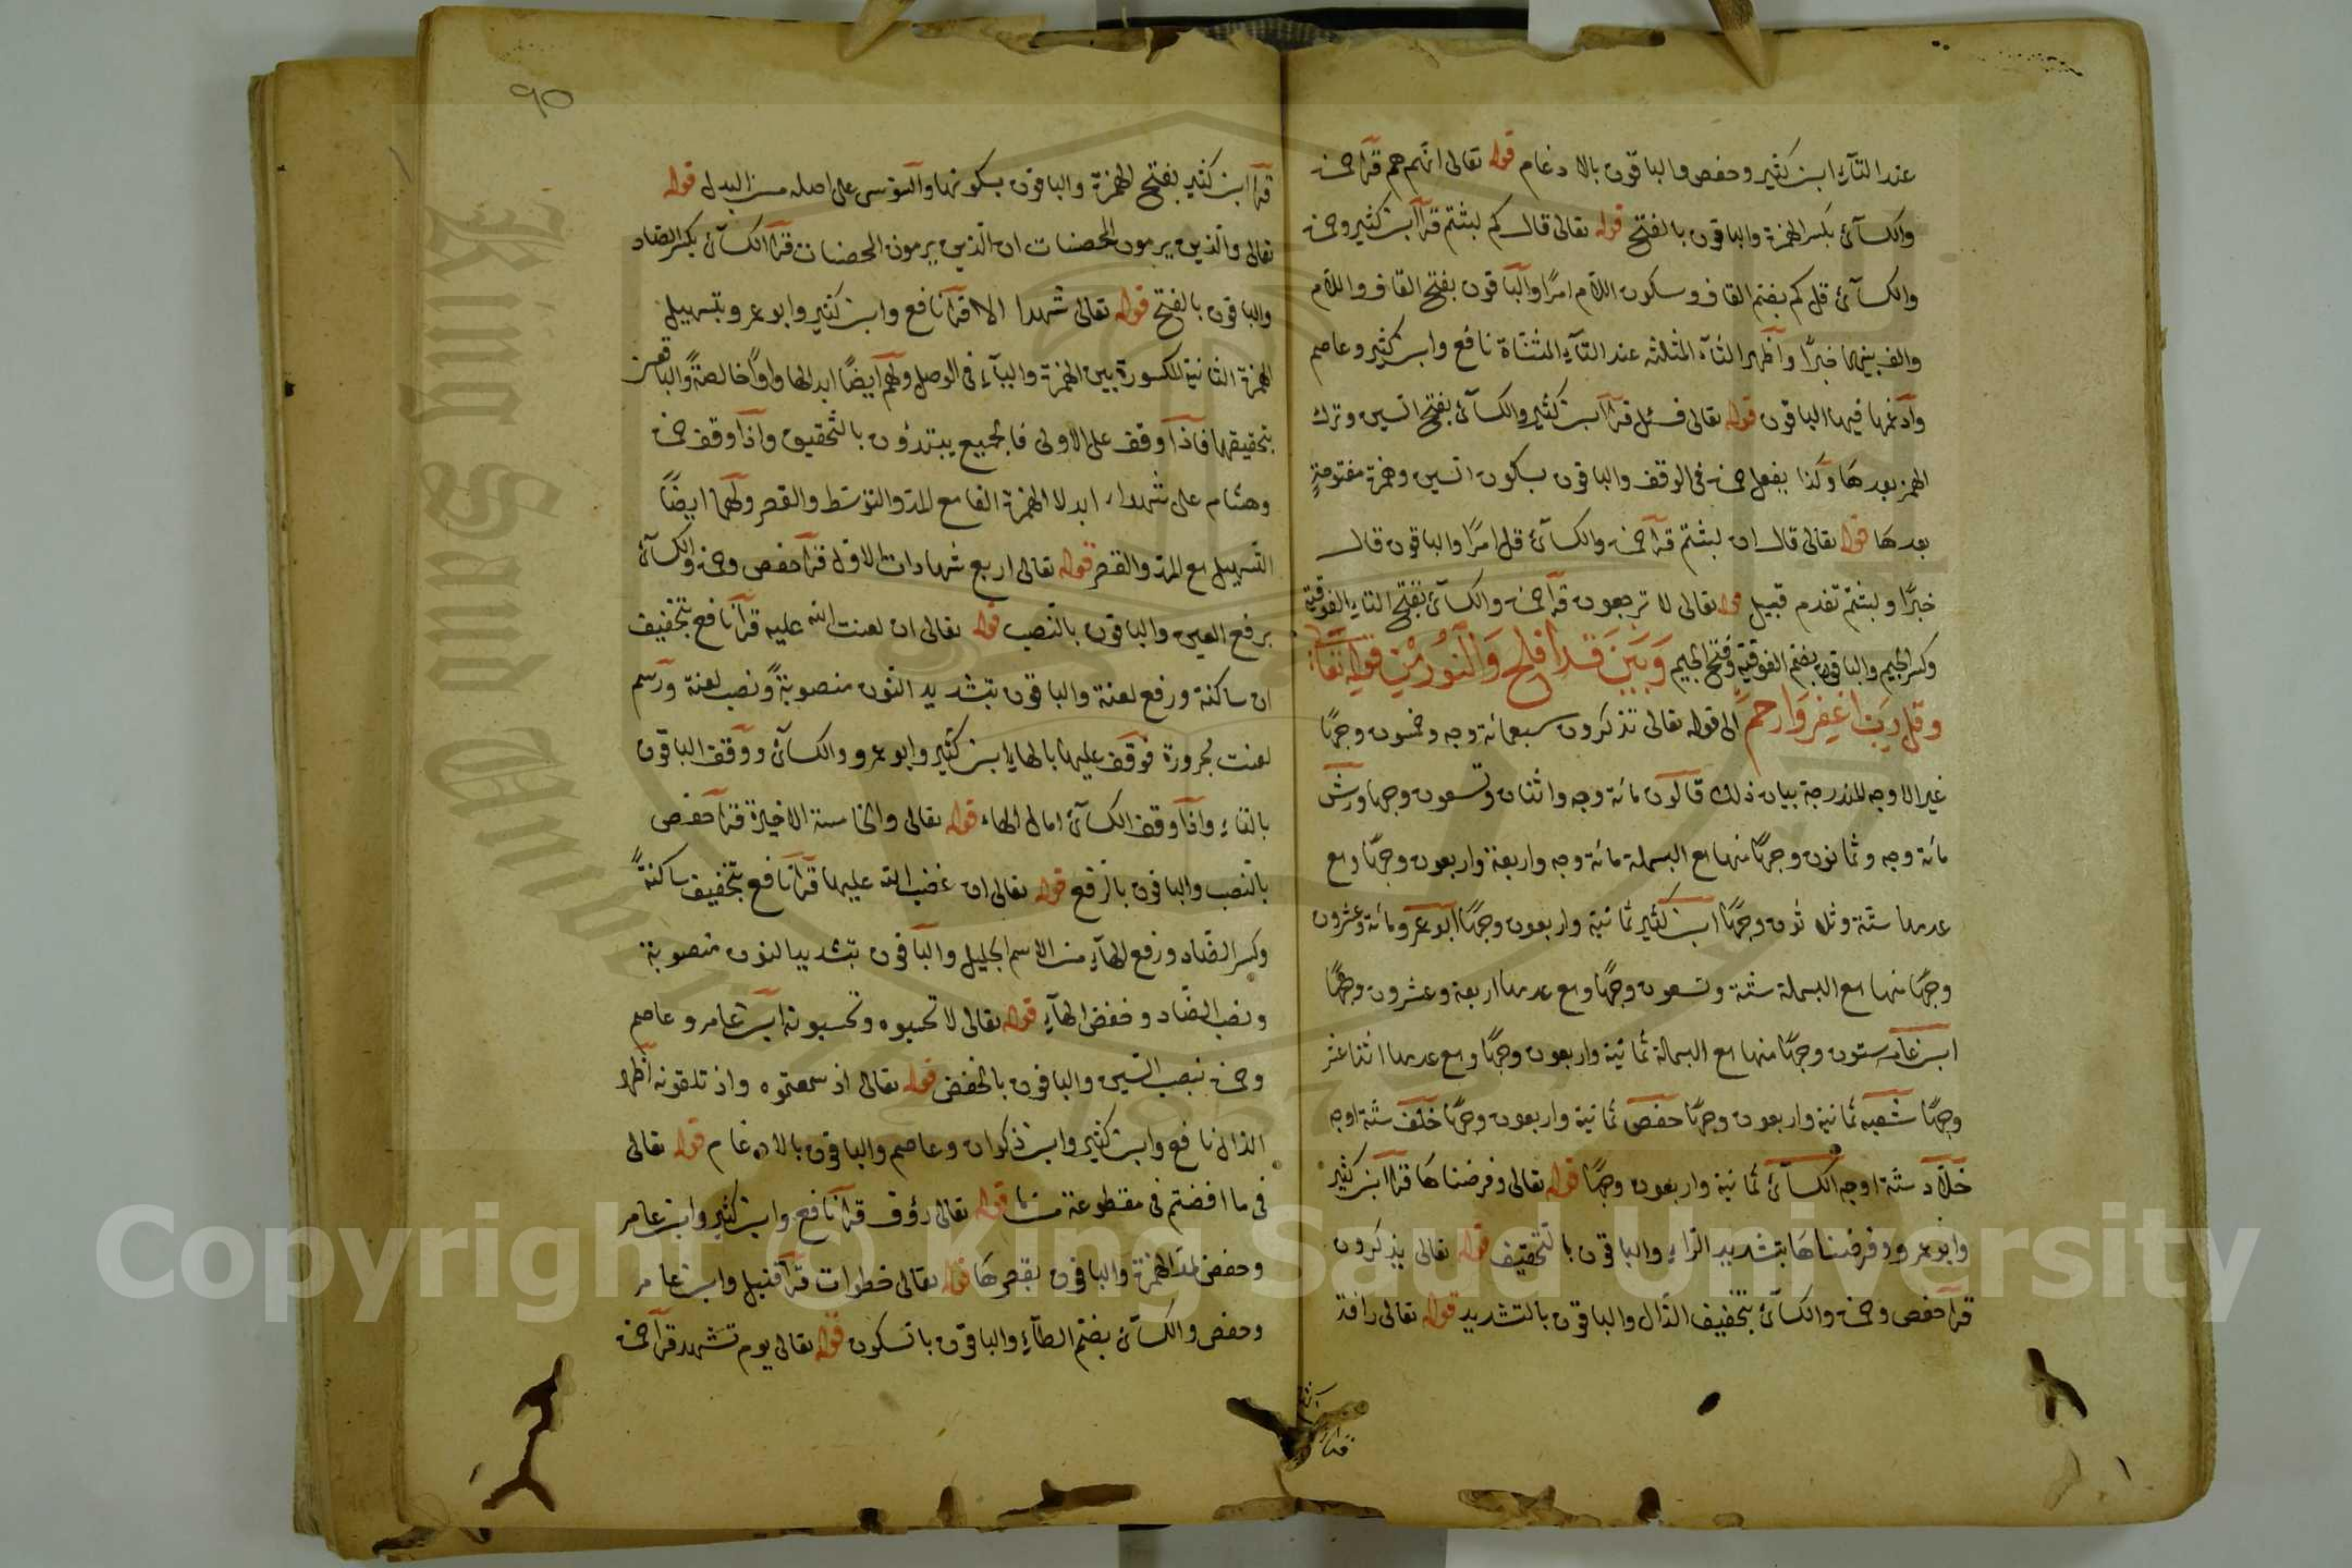 عند التآء ابن كثير وحفص والباقون بالادغام قوله تعالى انهم هم قرأ حمزة
والكسآئى بكسر الهمزة والباقون بالفتح قوله تعالى قال كم لبثتم قرأ ابن كثير وحمزة
والكسآئى قل كم بضم القاف وسكون اللام امرًا والباقون بفتح القاف واللام
والف بينهما خبرًا وأظهر الثآء المثلثة عند التآء المثناة نافع وابن كثير وعاصم
وأدغمها فيها الباقون قوله تعالى فسئل قرأ ابن كثير والكسآئى بفتح السين وترك
الهمز بعدها وكذا يفعل حمزة فى الوقف والباقون بسكون السين وهمزة مفتوحةٍ
بعدها قوله تعالى قال ان لبثتم قرأ حمزة والكسآئى قل امرًا والباقون قال
خبرًا ولبثتم تقدم قبيل قوله تعالى لا ترجعون قرأ حمزة والكسآئى بفتح التاء الفوقية
وكسر الجيم والباقون بضم الفوقية وفتح الجيم وَبَين قد افلح وَالنّور من قوله تعالى
وقل رب اغفر وارحم الى قوله تعالى تذكرون سبعمائة وجه وخمسون وجهًا
غير الاوجه المندرجة بيان ذلك قالون مائة وجه واثنان وتسعون وجها ورش
مائة وجه وثمانون وجهًا منها مع البسملة مائة وجه واربعة واربعون وجهًا ومع
عدمها ستة وثلاثون وجهًا ابن كثير ثمانية واربعون وجهًا ابو عمرو مائة وعشرون
وجهًا منها مع البسملة ستة وتسعون وجهًا ومع عدمها اربعة وعشرون وجهًا
ابن عامر ستون وجهًا منها مع البسملة ثمانية واربعون وجهًا ومع عدمها اثنا عشر
وجهًا شعبه ثمانية واربعون وجهًا حفص ثمانية واربعون وجهًا خلف ستة اوجه
خلاد ستة اوجه الكسآئى ثمانية واربعون وجهًا قوله تعالى وفرضناها قرأ ابن كثير
وابو عمرو وفرضناها بتشديد الرآء والباقون بالتخفيف قوله تعالى يذكرون
قرأ حفص وحمزة والكسآئى بتخفيف الذال والباقون بالتشديد قوله تعالى رافة
٩٥
قرأ ابن كثير بفتح الهمزة والباقون بسكونها والسوسى على اصله من البدل قوله
تعالى والذين يرمون المحصنات ان الذين يرمون المحصنات قرأ الكسآئى بكسر الصاد
والباقون بالفتح قوله تعالى شهدا الا قرأ نافع وابن كثير وابو عمرو بتسهيل
الهمزة الثانية المكسورة بين الهمزة واليآء فى الوصل ولهم أيضًا ابدالها واوًا خالصةً والباقون
بتحقيقها فاذا وقف على الاولى فالجميع يبتدؤن بالتحقيق واذا وقف حمزة
وهشام على شهداء ابدلا الهمزة الفا مع المد والتوسط والقصر ولهما ايضًا
التسهيل مع المد والقصر قوله تعالى اربع شهادات الاول قرأ حفص وحمزة والكسآئى
برفع العين والباقون بالنصب قوله تعالى ان لعنت الله عليه قرأ نافع بتخفيف
ان ساكنة ورفع لعنة والباقون بتشديد النون منصوبةً ونصب لعنة ورسم
لعنت مجرورة فوقف عليها بالهاء ابن كثير وابو عمرو والكسآئى ووقف الباقون
بالتاء واذا وقف الكسآئى امال الهاء قوله تعالى والخامسة الاخيرة قرأ حفص
بالنصب والباقون بالرفع قوله تعالى ان غضب الله عليها قرأ نافع بتخفيف ساكنةً
وكسر الضاد ورفع الهآء من الاسم الجليل والباقون بتشديد النون منصوبة
ونصب الضاد وخفض الهآء قوله تعالى لا تحسبوه وتحسبونه ابن عامر وعاصم
وحمزة بنصب السين والباقون بالخفض قوله تعالى اذ سمعتموه واذ تلقونه أظهر
الذال نافع وابن كثير وابن ذكوان وعاصم والباقون بالادغام قوله تعالى
فى ما افضتم فى مقطوعة من ما قوله تعالى رؤف قرأ نافع وابن كثير وابن عامر
وحفص بمد الهمزة والباقون بقصرها قوله تعالى خطوات قرأ قنبل وابن عامر
وحفص والكسآئى بضم الطآء والباقون بالسكون قوله تعالى يوم تشهد قرأ حمزة
King Saud University
1957
Copyright © King Saud University